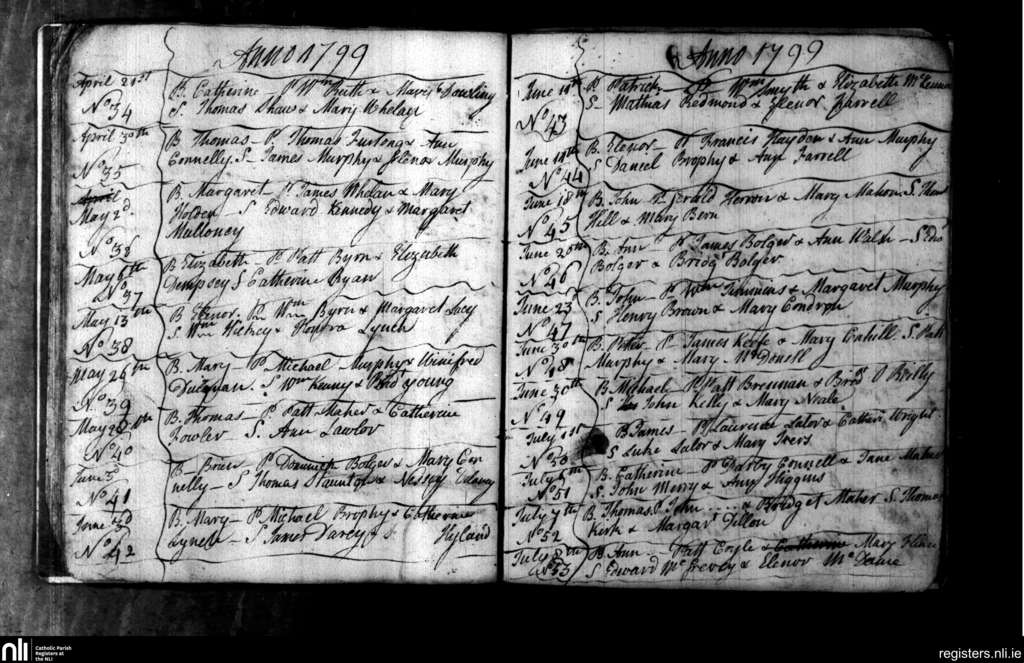 Anno 1799
April 21st
No 34
B. Catherine - P. Wm Ruth & Mary Dowling
S. Thomas Shaw & Mary Whelan
April 30th
No 35
B Thomas - P Thomas Furlong & Ann
Connelly S. James Murphy & Elenor Murphy
April
May 2d
No 36
B. Margaret - P James Whelan & Mary
Holden - S Edward Kennedy & Margaret
Mulloney
May 6th
No 37
B Elizabeth - P Patt Byrn & Elizabeth
Dempsey S Catherine Ryan
May 13th
No 38
B Elenor. P. Wm Byrn & Margaret Lacy
S. Wm Hickey & Honora Lynch
May 26th
No 39
B. Mary - P Michael Murphy & Winifred
S. Wm & young
May 28th
No 40
B. Thomas - P. Patt Maher & Catherine
Fowler S. Ann Lawlor
June 3d
No 41
B - Brien P Dominick Bolger & Mary Con
nelly - S Thomas Staunton & Nessey
June 3d
No 42
B. Mary - P Michael Brophy & Catherine
Lynch - S James Darcy & S. Hyland
Anno 1799
June 10th
No 43
B Patrick - P - Wm Smyth & Elizabeth
S. Mathias Redmond & Elenor Farrell
June 11th
No 44
B. Elenor - P Francis Haydon & Ann Murphy
S Daniel Brophy & Ann Farrell
June 18th
No 45
B. John P. Gerald Herron & Mary Mahon S. Thos
Hill & Mary Bern
June 20th
No 46
B. Ann P James Bolger & Ann Walsh - S Edwd
Bolger & Bridgt Bolger
June 23
No 47
B. John - P Wm Timmons & Margaret Murphy
S Henry Brown & Mary Condron
June 30th
No 48
B. Peter - P James Keefe & Mary Cahill S. Patt
Murphy & Mary McDonell
June 30th
No 49
B. Michael - P Patt Brennan & Bridt O Reilly
S John Kelly & Mary Neale
July 1st
No 50
B James - P Laurence Lalor & Cathrin Wright
S Luke Lalor & Mary Ivers
July 5th
No 51
B. Catherine P Darby Connell & Jane Maher
S. John Merry & Amy Higgins
July 7th
No 52
B Thomas P John ...... & Bridget Maher S. Thomas
Kirk & Margart Dillon
July 8th
No 53
B Ann - Patt Coyle & Catherine Mary
S Edward & Elenor
nli
Catholic Parish
Registers at
the NLI
registers.nli.ie